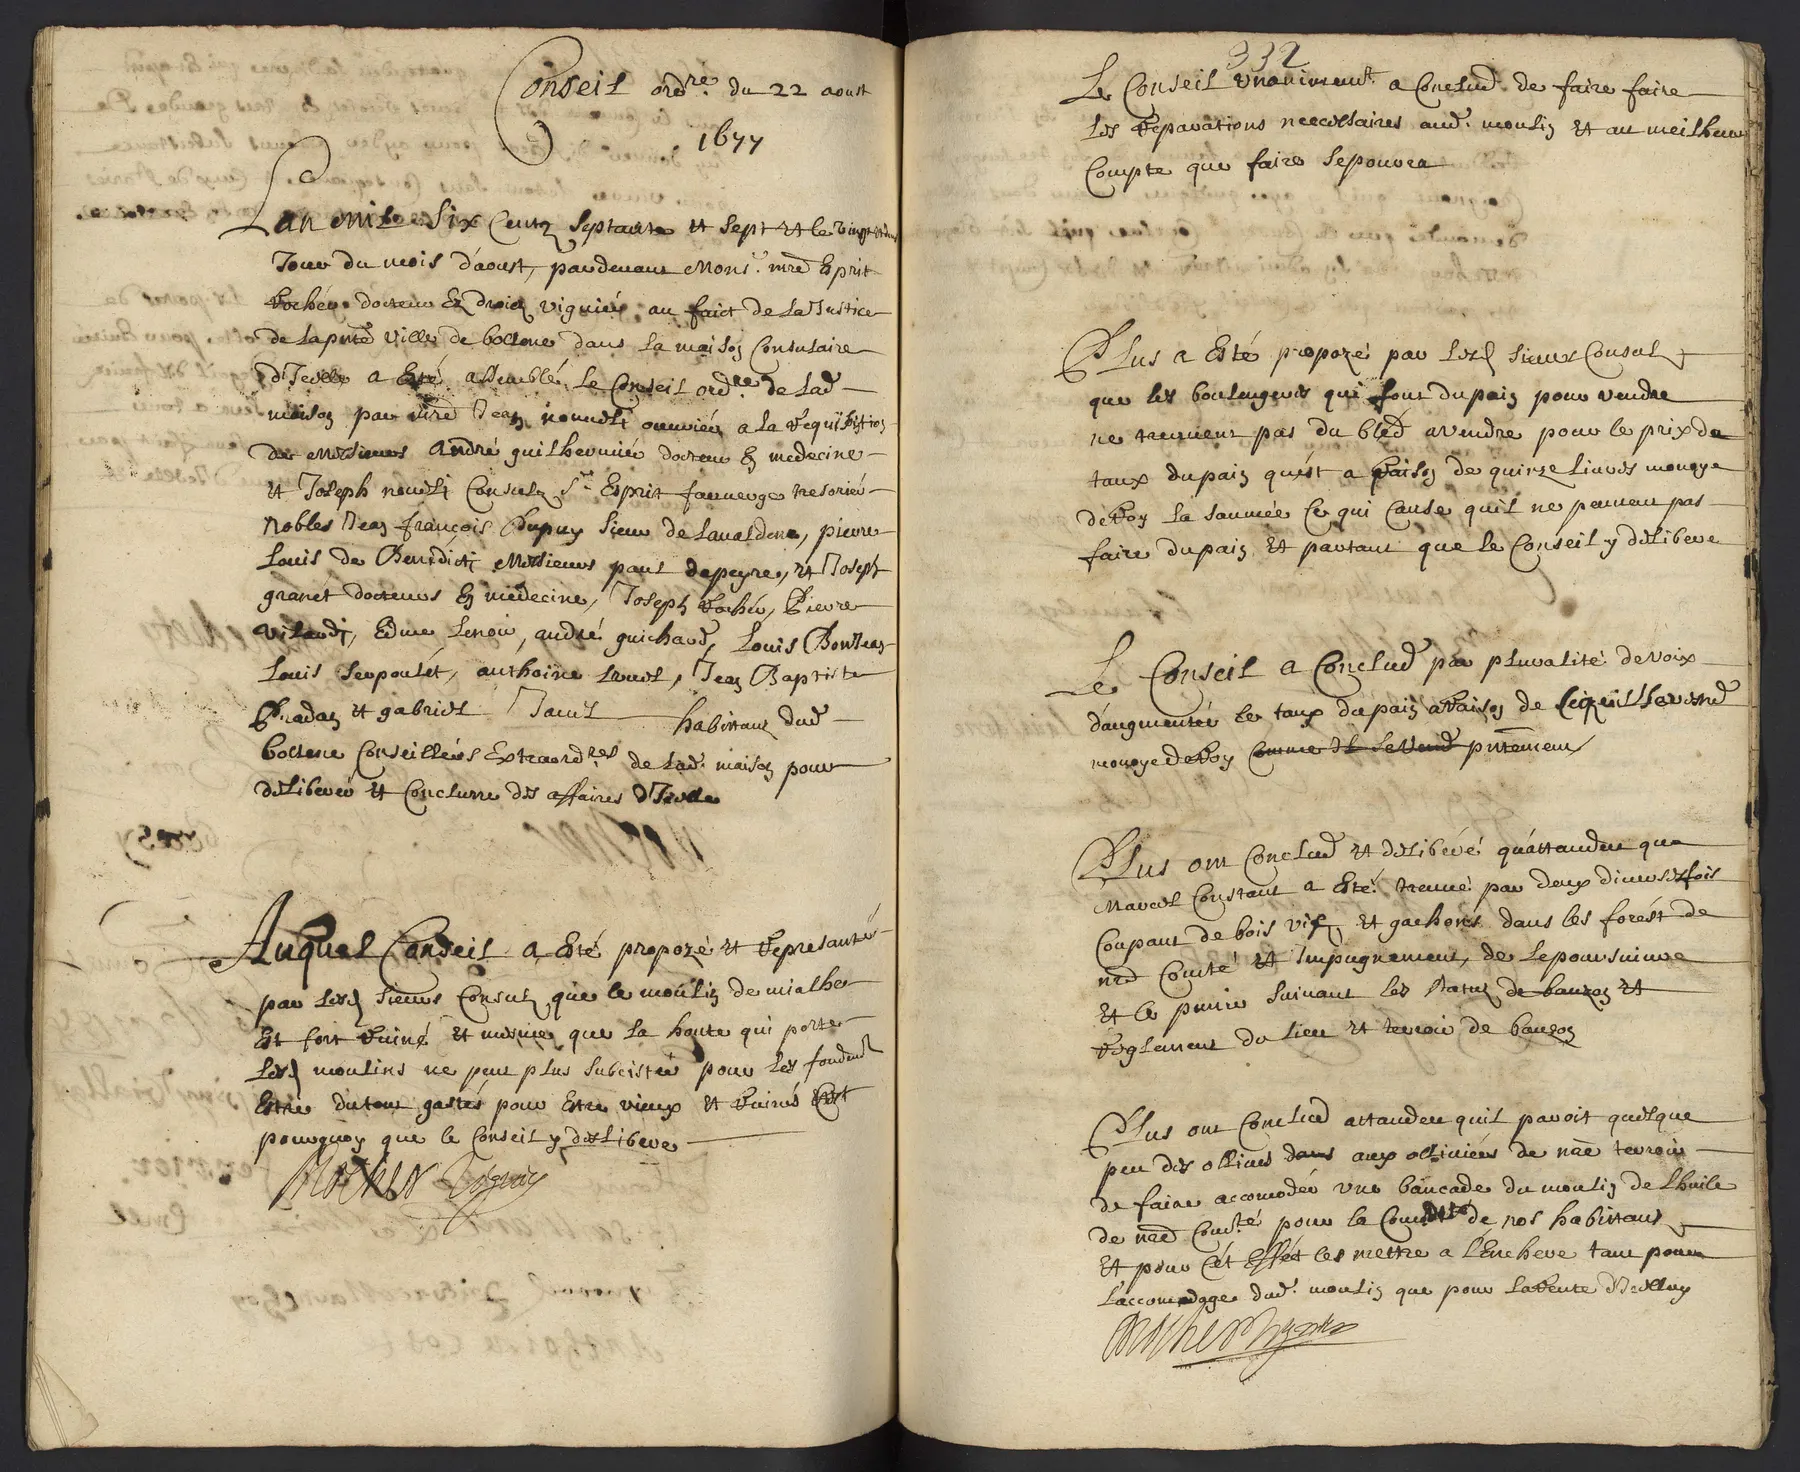 Conseil ord.re du 22 aoust
1677
Lan mil Six Centz Septante et Sept et le vingt deux
Jour du mois d'aoust, pardevant Mons.r mre Esprit
Rochér docteur En droict viguiér au faict de la Justice
de la pnte ville de bollene dans la maison Consulaire
d'Icelle a Esté assemblé le Conseil ord.re de lad.
maison par mre Jean nouveli ouvriér a la requisition
de Messieurs André guilhermiér docteur En medecine
et Joseph nouveli Consulz S.r Esprit tresoriér
Nobles Jean françois Dupuy Sieur de Lavaldene, pierre
Louis de Benedicti Messieurs paul depeyre, et Joseph
granét docteurs En medecine, Joseph Rochér, Pierre
Edme Lenoir, andré guichard, Louis Bonjean
Louis Serpoulét, anthoine Jean Baptiste
Pradan et gabriel habittans dud.
bollene Conseillérs Extraord.res de lad. maison pour
deliberér et Conclurre des affaires d'Icelle
Auquel Conseil a Esté propozé et represanté
par lesd. Sieurs Consulz que le moulin de mialhe
Est fort ruiné et mesme que la haute qui porte
lesd. moulins ne peut plus Subcistér pour les fondemt
Estre dutout gastés pour Estre vieux et ruinés
pourquoy que le Conseil y delibere
Rocher
332
Le Conseil vnaniment a Conclud de faire faire
les reparations neccessaires aud. moulin et au meilheur
Compte que faire Sepourra
Plus a Esté propozé par lesd. Sieurs Consulz
que les boulengérs qui font dupain pour vendre
ne treuvent pas du bled avendre pour le prix du
taux dupain quést a raison de quinze liuvres monoye
deRoy la saumée Ce qui Cause quil ne peuvent pas
faire dupain et partant que le Conseil y delibere
Le Conseil a Conclud par pluralité devoix
d'augmentér le taux dupain araison de
monoyedeRoy Comme Il Sevend pntement
Plus ont Conclud et deliberé quáttandeu que
Marcel Constant a Esté treuvé par deux diverses fois
Coupant de bois vif, et gachons dans les forést de
nre Comté et Impugnement, de le poursuivre
et le punir Suivant les statuz de bauzon et
reglement du lieu et terroir de bauzon
Plus ont Conclud attandeu quil paroit quelque
peu des ollives dans aux olliviérs de nre terroir
de faire accomodér vne bancade du moulin de lhuile
de nre Com.té pour la Comodité de nos habittans
et pour cét Efféct les mettre a l'Enchere tant pour
laccomodage dud. moulin que pour larente d'Icelluy
Rocher